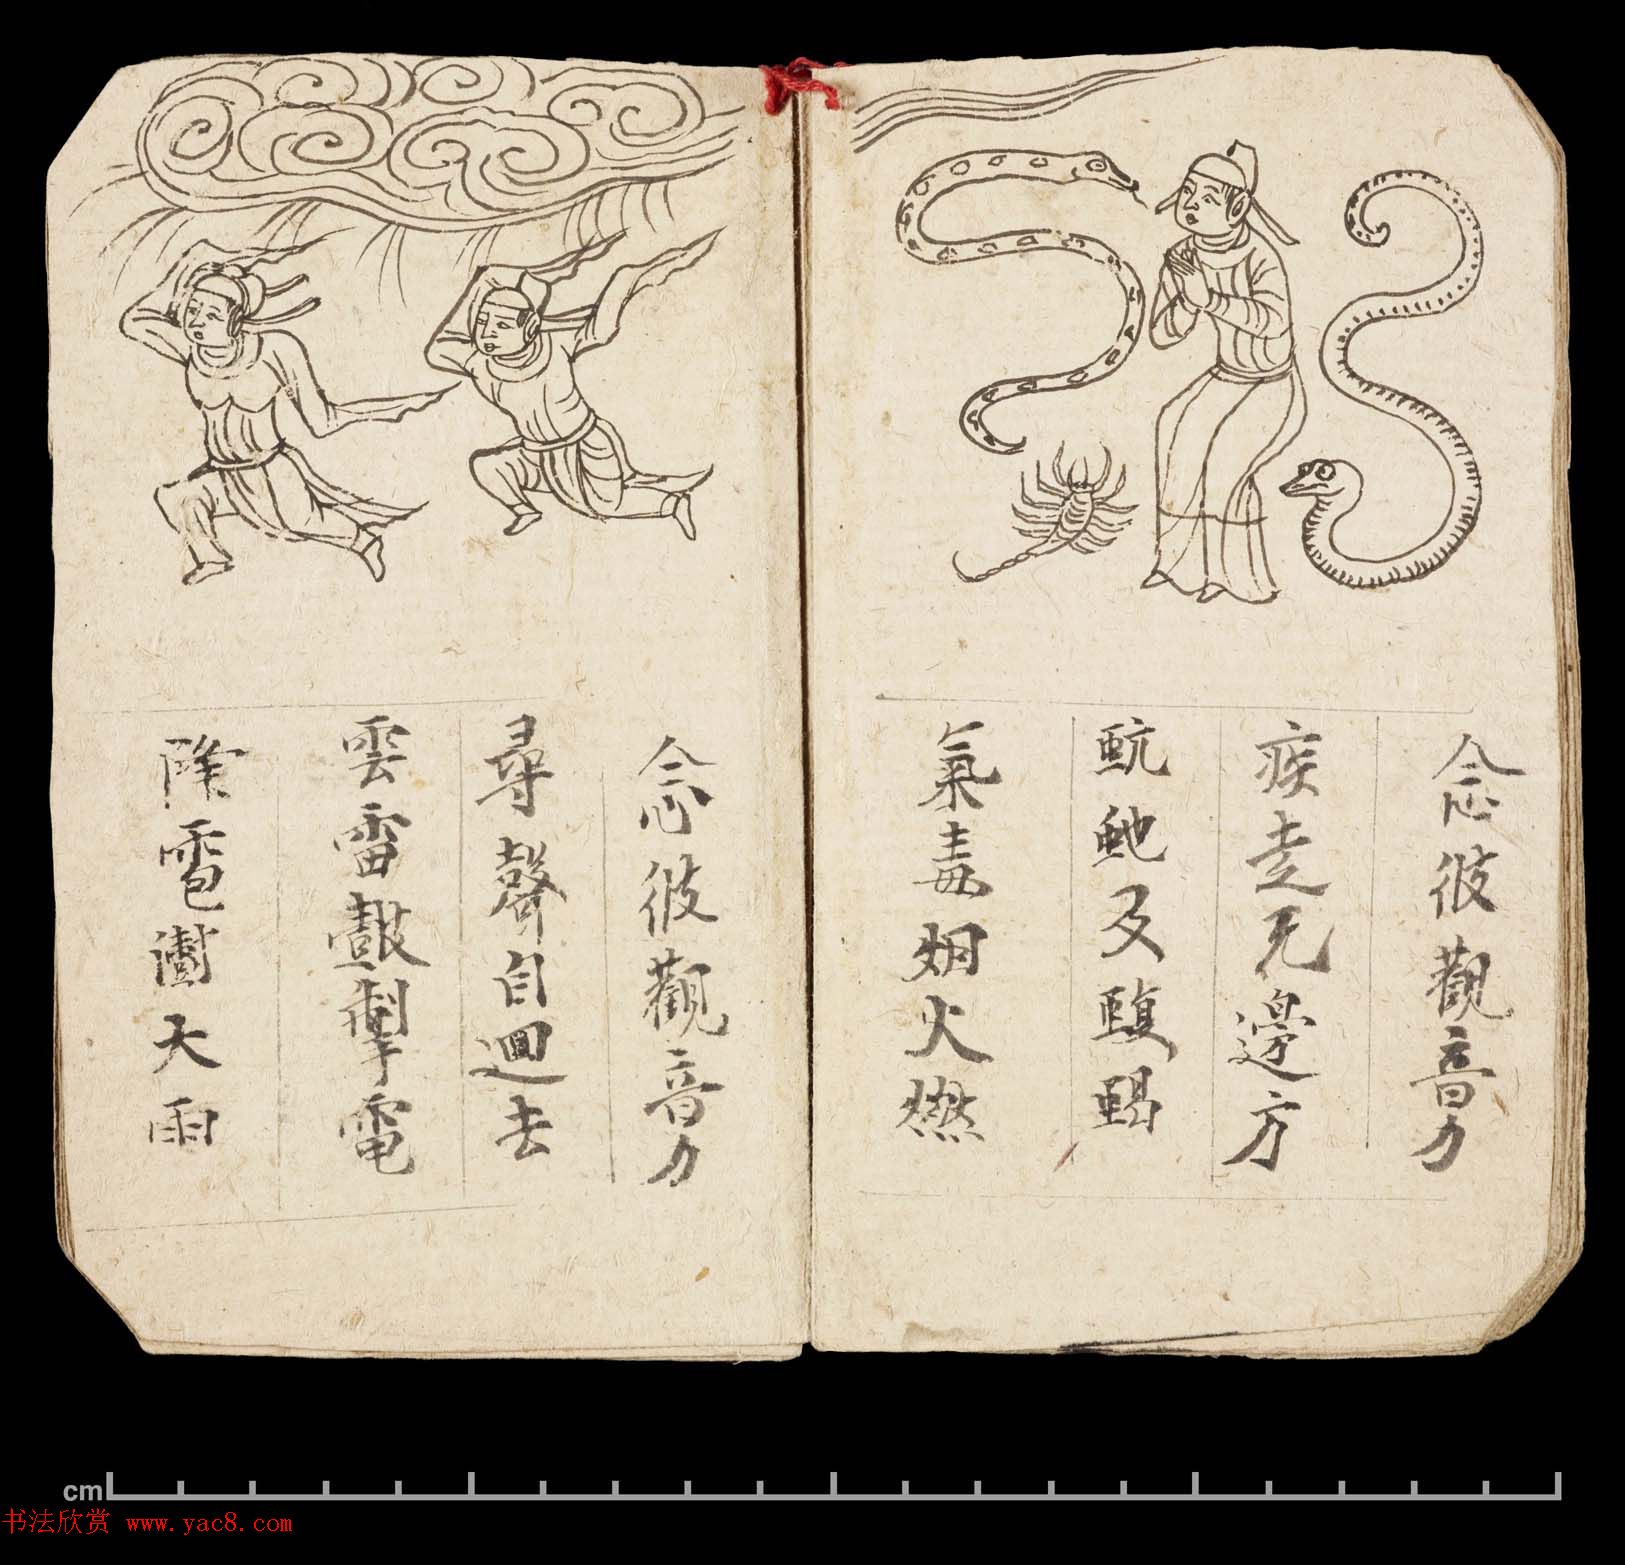 念彼觀音力
疾走无邊方
蚖虵及蝮蝎
氣毒烟火燃
念彼觀音力
尋聲自迴去
雲雷鼓掣電
降雹澍大雨
cm
书法欣赏 www.yac8.com